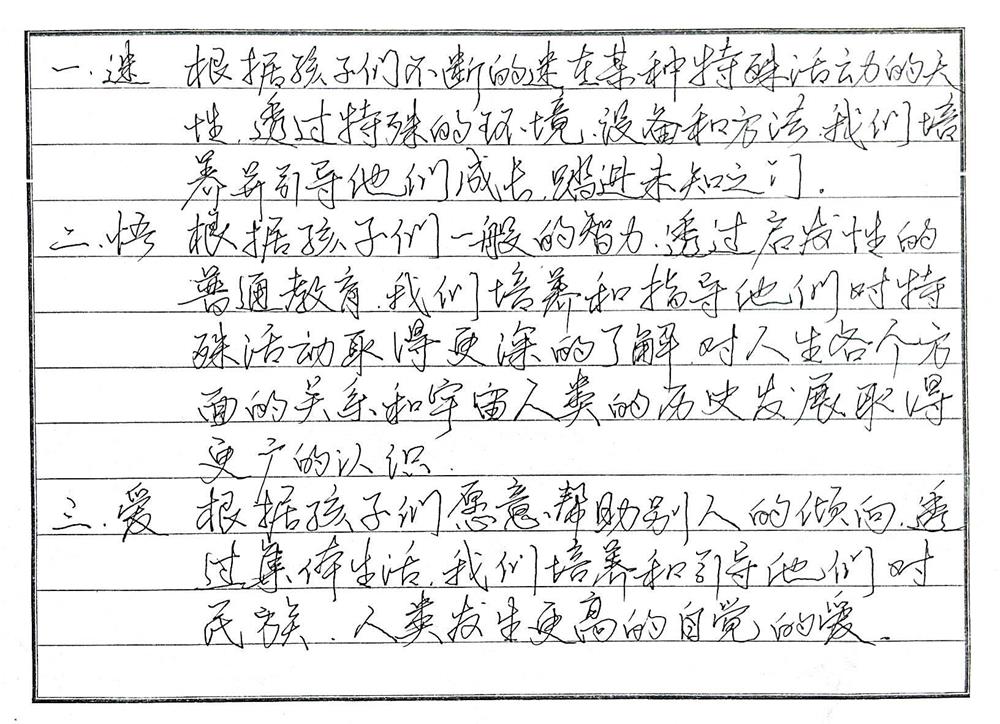 一.迷 根据孩子们不断的迷在某种特殊活动的天
性,透过特殊的环境、设备和方法,我们培
养并引导他们成长,踏进未知之门.
二.悟 根据孩子们一般的智力,透过启发性的
普通教育,我们培养和指导他们对特
殊活动取得更深的了解,对人生各个方
面的关系和宇宙人类的历史发展取得
更广的认识.
三.爱 根据孩子们愿意帮助别人的倾向,透
过集体生活,我们培养和引导他们对
民族、人类发生更高的自觉的爱.